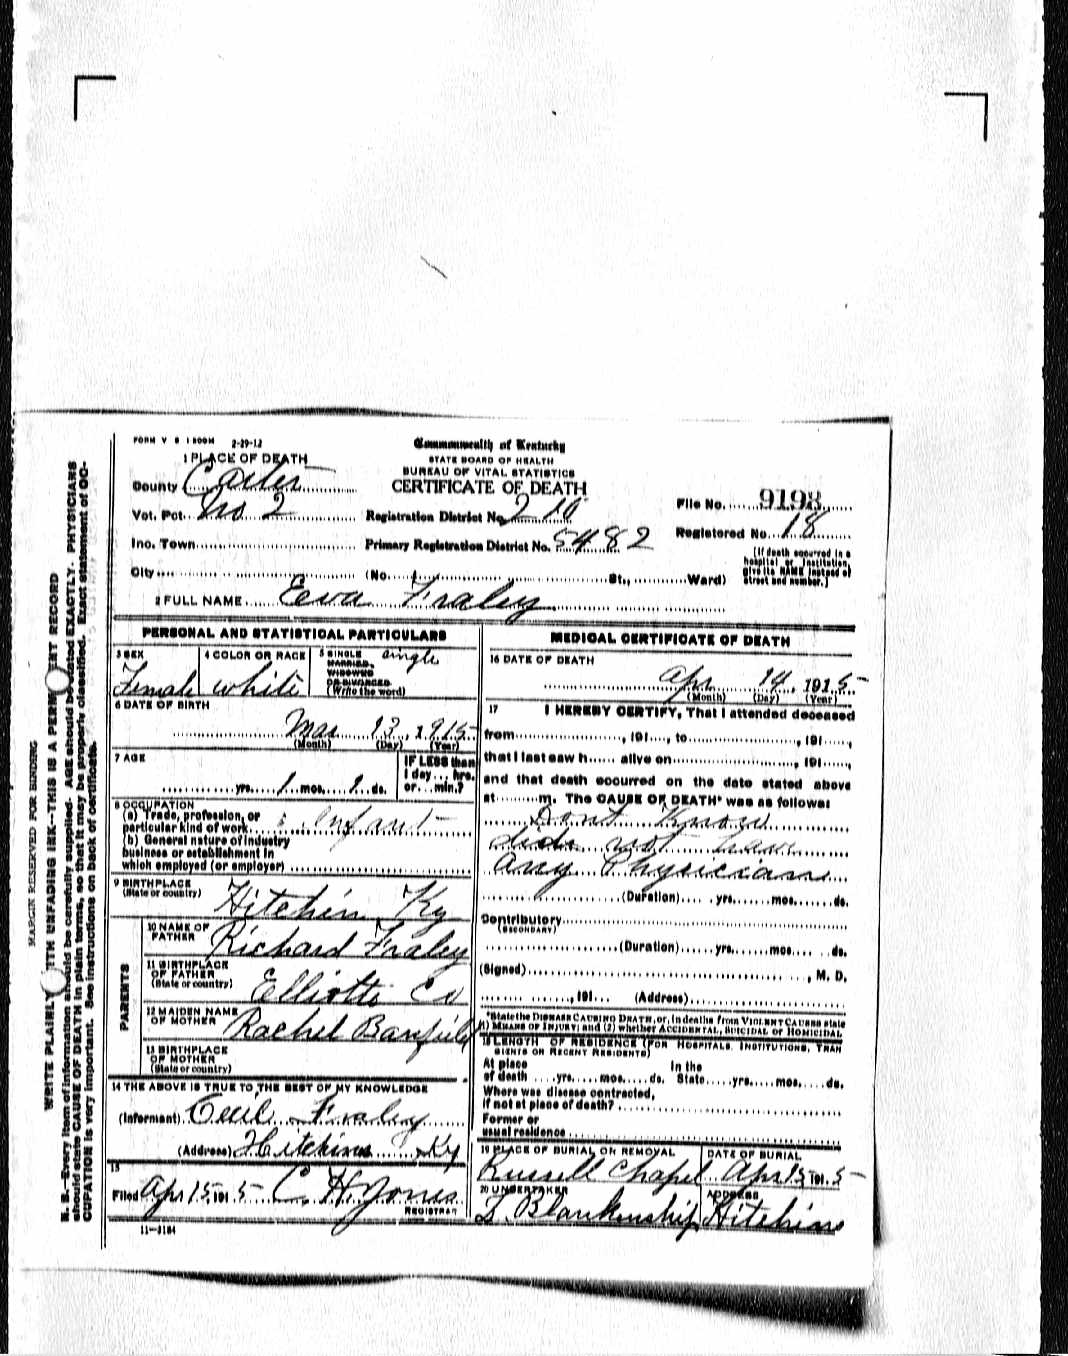 FORM V S 1 500M 2-29-12
Commonwealth of Kentucky
STATE BOARD OF HEALTH
BUREAU OF VITAL STATISTICS
CERTIFICATE OF DEATH
1 PLACE OF DEATH
County Carter
Vot. Pct. No 2
Inc. Town
City
Registration District No. 210
Primary Registration District No. 5482
File No. 9198
Registered No. 18
(No. St., Ward)
[If death occurred in a
hospital or institution,
give its NAME instead of
street and number.]
2 FULL NAME Eva Fraley
PERSONAL AND STATISTICAL PARTICULARS
3 SEX
Female
4 COLOR OR RACE
white
5 SINGLE single
MARRIED,
WIDOWED
OR DIVORCED
(Write the word)
6 DATE OF BIRTH
Mar 13, 1915
(Month) (Day) (Year)
7 AGE
yrs. 1 mos. 1 ds.
IF LESS than
1 day ... hrs.
or ... min.?
8 OCCUPATION
(a) Trade, profession, or
particular kind of work Infant
(b) General nature of industry
business or establishment in
which employed (or employer)
9 BIRTHPLACE
(State or country) Hitchin Ky
PARENTS
10 NAME OF
FATHER Richard Fraley
11 BIRTHPLACE
OF FATHER
(State or country) Elliotte Co
12 MAIDEN NAME
OF MOTHER Rachel Banfield
13 BIRTHPLACE
OF MOTHER
(State or country)
14 THE ABOVE IS TRUE TO THE BEST OF MY KNOWLEDGE
(Informant) Cecil Fraley
(Address) Hitchins Ky
15
Filed Apr 15 1915 C. H. Jones
REGISTRAR
11-3184
MEDICAL CERTIFICATE OF DEATH
16 DATE OF DEATH
Apr 14, 1915
(Month) (Day) (Year)
17 I HEREBY CERTIFY, That I attended deceased
from , 191 , to , 191 ,
that I last saw h alive on , 191 ,
and that death occurred on the date stated above
at m. The CAUSE OF DEATH* was as follows:
Dont Know
did not have
any Physician
(Duration) yrs. mos. ds.
Contributory
(SECONDARY)
(Duration) yrs. mos. ds.
(Signed) , M. D.
, 191 (Address)
*State the DISEASE CAUSING DEATH, or, in deaths from VIOLENT CAUSES state
(1) MEANS OF INJURY; and (2) whether ACCIDENTAL, SUICIDAL or HOMICIDAL
18 LENGTH OF RESIDENCE (FOR HOSPITALS, INSTITUTIONS, TRAN
SIENTS OR RECENT RESIDENTS)
At place In the
of death yrs. mos. ds. State yrs. mos. ds.
Where was disease contracted,
if not at place of death?
Former or
usual residence
19 PLACE OF BURIAL OR REMOVAL
Russell Chapel
DATE OF BURIAL
Apr 15 1915
20 UNDERTAKER
L. Blankenship
ADDRESS
Hitchins
MARGIN RESERVED FOR BINDING
WRITE PLAINLY WITH UNFADING INK—THIS IS A PERMANENT RECORD
N. B.—Every item of information should be carefully supplied. AGE should be stated EXACTLY. PHYSICIANS
should state CAUSE OF DEATH in plain terms, so that it may be properly classified. Exact statement of OC-
CUPATION is very important. See instructions on back of certificate.